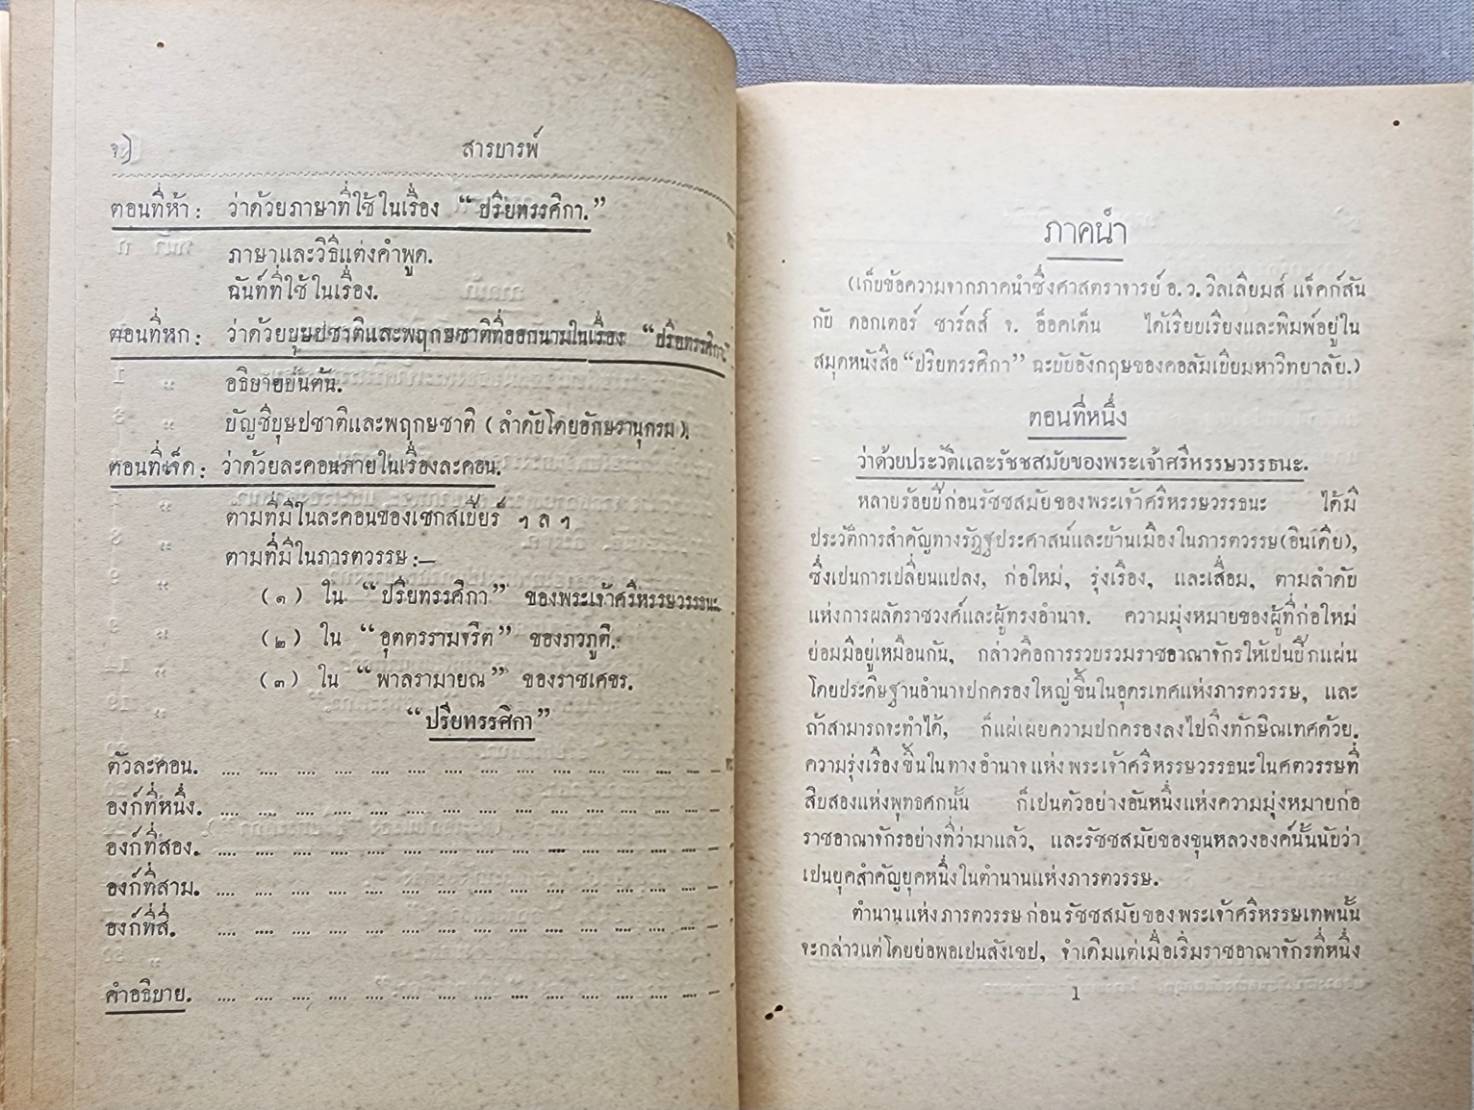 สารบารพ์
ตอนที่ห้า: ว่าด้วยภาษาที่ใช้ในเรื่อง “ปริยทรรศิกา.”
ภาษาและวิธีแต่งคำพูด.
ฉันท์ที่ใช้ในเรื่อง.
ตอนที่หก: ว่าด้วยบุษปชาติและพฤกษชาติที่ออกนามในเรื่อง “ปริยทรรศิกา”
อธิบายขั้นต้น.
บัญชีบุษปชาติและพฤกษชาติ (ลำดับโดยอักษรานุกรม).
ตอนที่เจ็ด: ว่าด้วยละคอนภายในเรื่องละคอน.
ตามที่มีในละคอนของเชกสเปียร์ ฯ ล ฯ
ตามที่มีในภารตวรรษ:—
(๑) ใน “ปริยทรรศิกา” ของพระเจ้าศรีหรรษวรรธนะ.
(๒) ใน “อุตตรรามจริต” ของภวภูติ.
(๓) ใน “พาลรามายณ” ของราชเศขร.
“ปริยทรรศิกา”
ตัวละคอน. .... .... .... .... .... .... .... .... .... .... .... .... ....
องก์ที่หนึ่ง. .... .... .... .... .... .... .... .... .... .... .... .... ....
องก์ที่สอง. .... .... .... .... .... .... .... .... .... .... .... .... ....
องก์ที่สาม. .... .... .... .... .... .... .... .... .... .... .... .... ....
องก์ที่สี่. .... .... .... .... .... .... .... .... .... .... .... .... ....
คำอธิบาย. .... .... .... .... .... .... .... .... .... .... .... .... ....
ภาคนำ
(เก็บข้อความจากภาคนำซึ่งศาสตราจารย์ อ. ว. วิลเลียมส์ แจ็คก์สัน
กับ ดอกเตอร์ ชาร์ลส์ จ. อ็อคเด็น ได้เรียบเรียงและพิมพ์อยู่ใน
สมุดหนังสือ “ปริยทรรศิกา” ฉะบับอังกฤษของคอลัมเบียมหาวิทยาลัย.)
ตอนที่หนึ่ง
ว่าด้วยประวัติและรัชชสมัยของพระเจ้าศรีหรรษวรรธนะ.
หลายร้อยปีก่อนรัชชสมัยของพระเจ้าศรีหรรษวรรธนะ ได้มี
ประวัติการสำคัญทางรัฏฐประศาสน์และบ้านเมืองในภารตวรรษ(อินเดีย),
ซึ่งเป็นการเปลี่ยนแปลง, ก่อใหม่, รุ่งเรือง, และเสื่อม, ตามลำดับ
แห่งการผลัดราชวงศ์และผู้ทรงอำนาจ. ความมุ่งหมายของผู้ที่ก่อใหม่
ย่อมมีอยู่เหมือนกัน, กล่าวคือการรวบรวมราชอาณาจักรให้เป็นปึกแผ่น
โดยประดิษฐานอำนาจปกครองใหญ่ขึ้นในอุดรเทศแห่งภารตวรรษ, และ
ถ้าสามารถจะทำได้, ก็แผ่เผยความปกครองลงไปถึงทักษิณเทศด้วย.
ความรุ่งเรืองขึ้นในทางอำนาจแห่งพระเจ้าศรีหรรษวรรธนะในศตวรรษที่
สิบสองแห่งพุทธศกนั้น ก็เป็นตัวอย่างอันหนึ่งแห่งความมุ่งหมายก่อ
ราชอาณาจักรอย่างที่ว่ามาแล้ว, และรัชชสมัยของขุนหลวงองค์นั้นนับว่า
เป็นยุคสำคัญยุคหนึ่งในตำนานแห่งภารตวรรษ.
ตำนานแห่งภารตวรรษก่อนรัชชสมัยของพระเจ้าศรีหรรษเทพนั้น
จะกล่าวแต่โดยย่อพอเป็นสังเขป, จำเดิมแต่เมื่อเริ่มราชอาณาจักรที่หนึ่ง
1